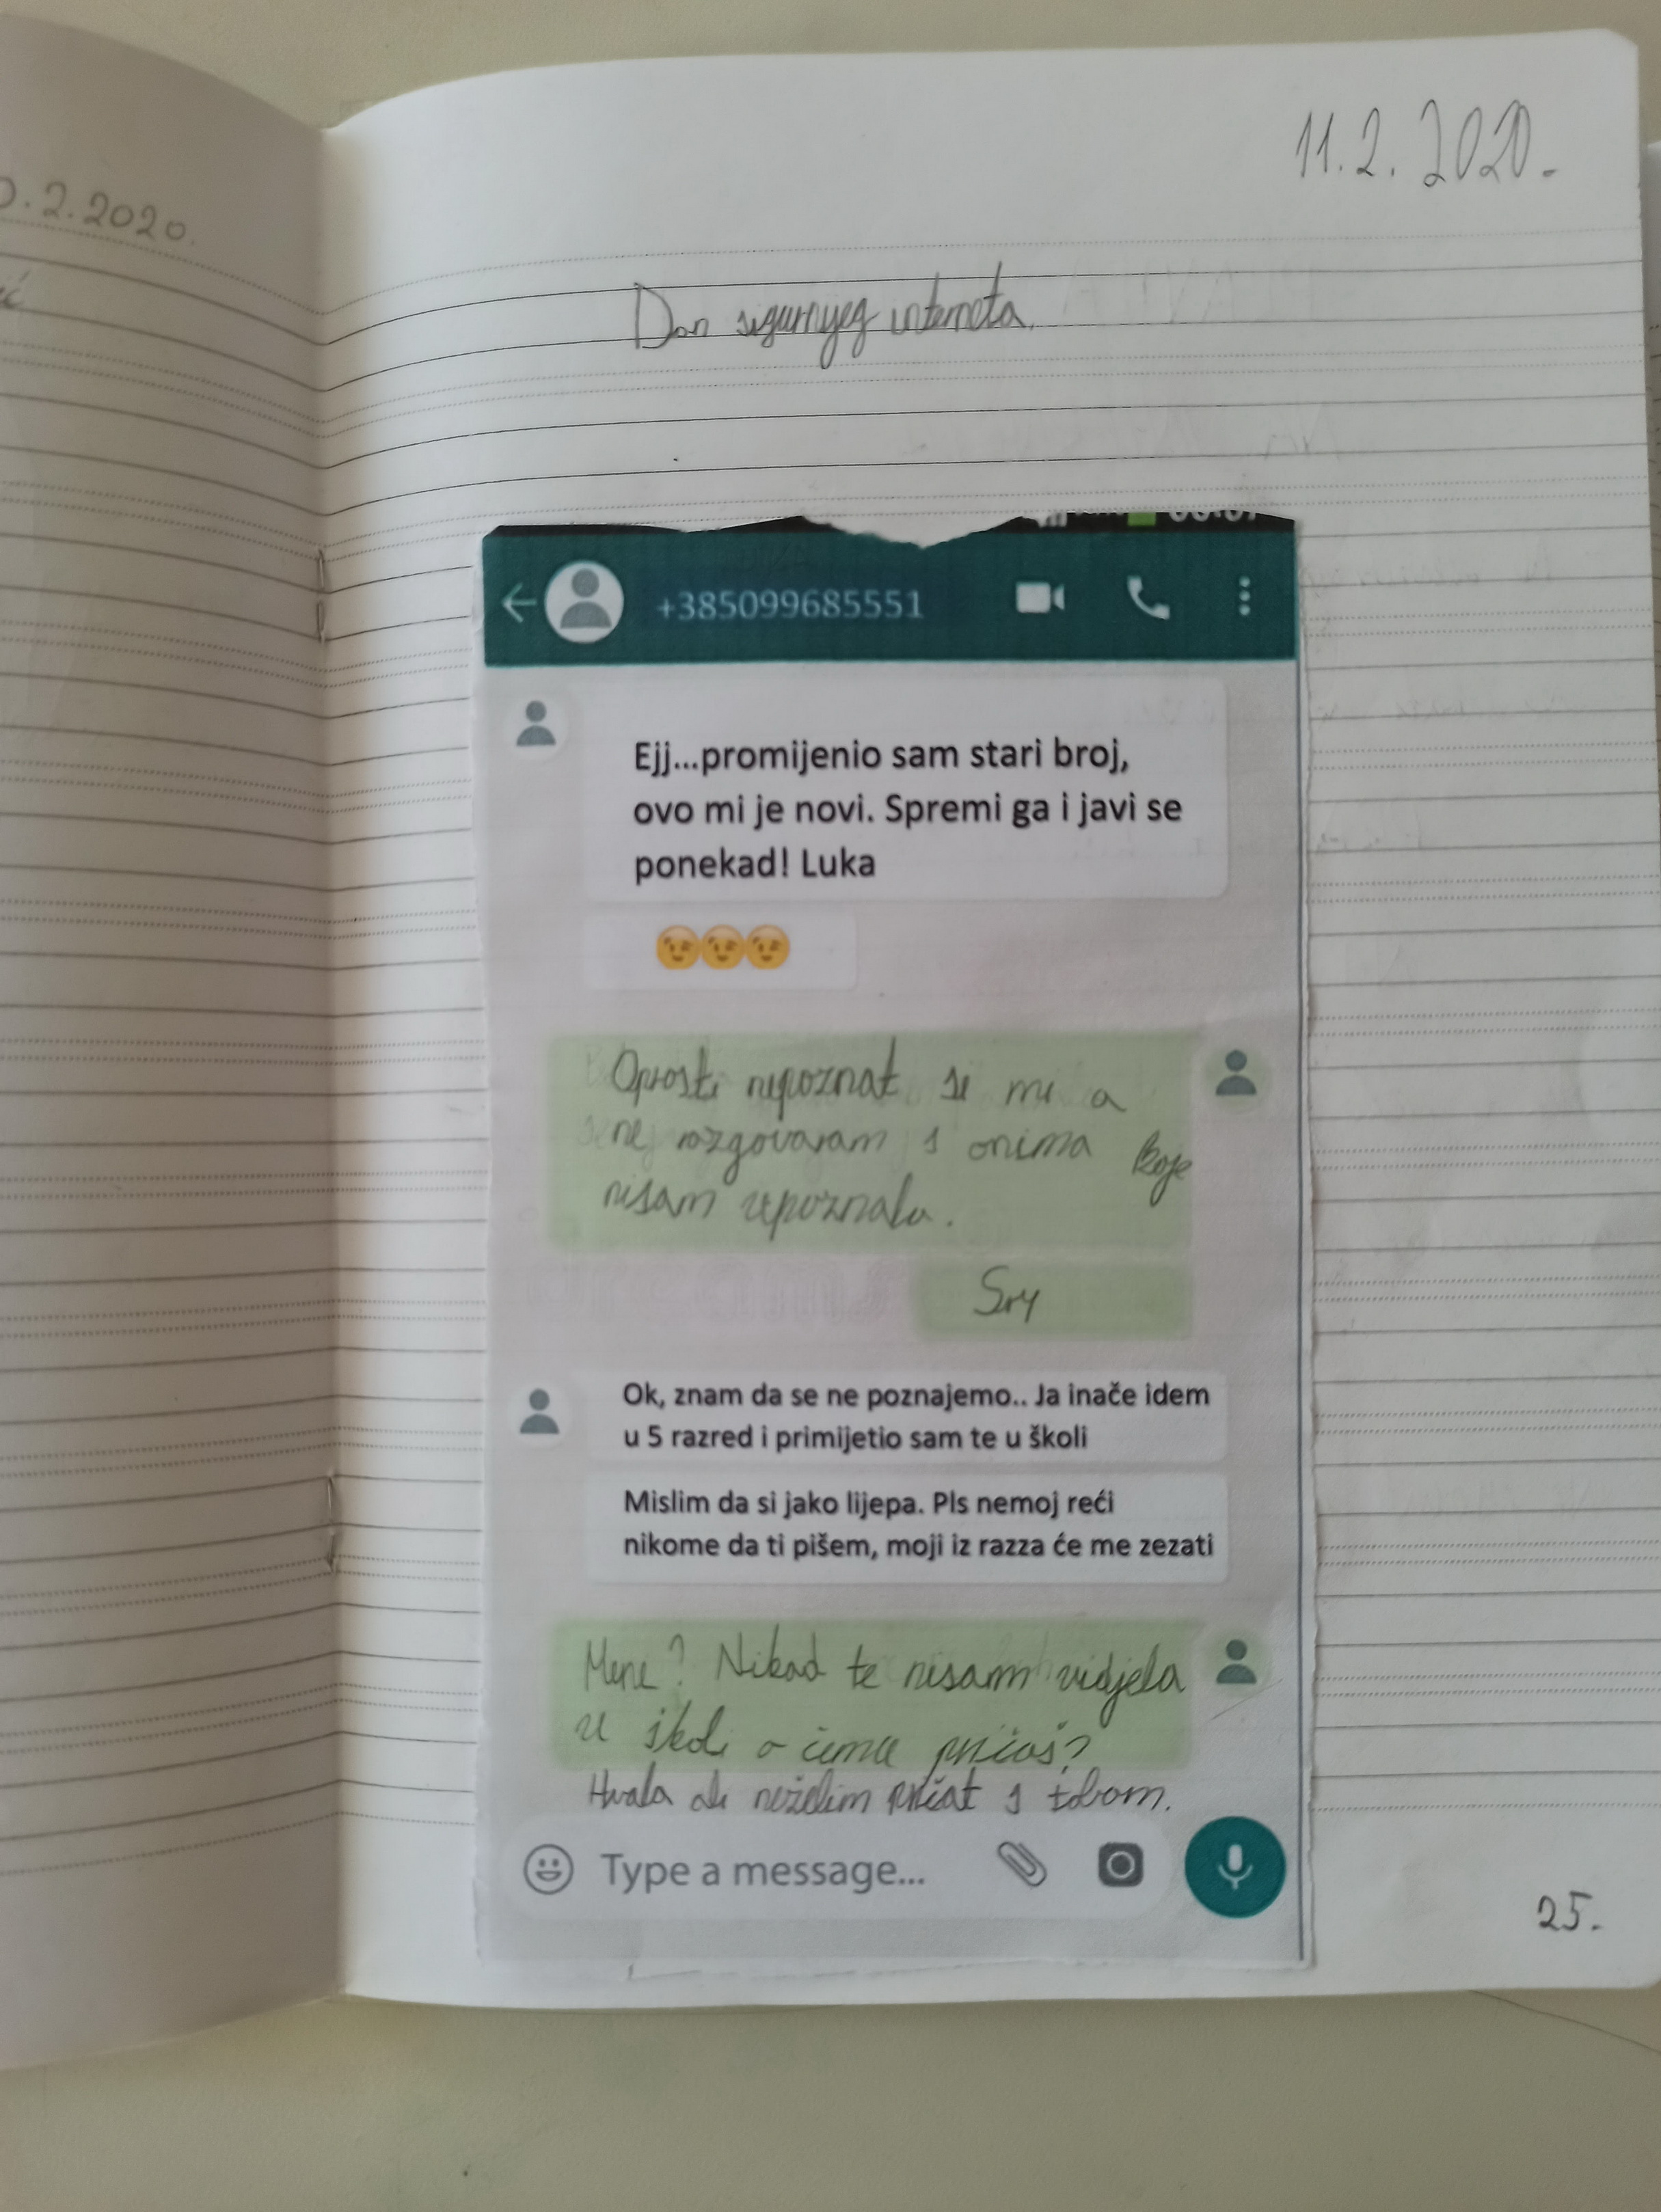 0.2.2020.
11.2.2020.
Dan sigurnijeg interneta.
+385099685551
Ejj...promijenio sam stari broj,
ovo mi je novi. Spremi ga i javi se
ponekad! Luka
😉😉😉
Oprosti nepoznat si mi a
ne razgovaram s onima koje
nisam upoznala.
Sry
Ok, znam da se ne poznajemo.. Ja inače idem
u 5 razred i primijetio sam te u školi
Mislim da si jako lijepa. Pls nemoj reći
nikome da ti pišem, moji iz razza će me zezati
Mene? Nikad te nisam vidjela
u školi o čemu pričaš?
Hvala ali neželim pričat s tobom.
Type a message...
25.